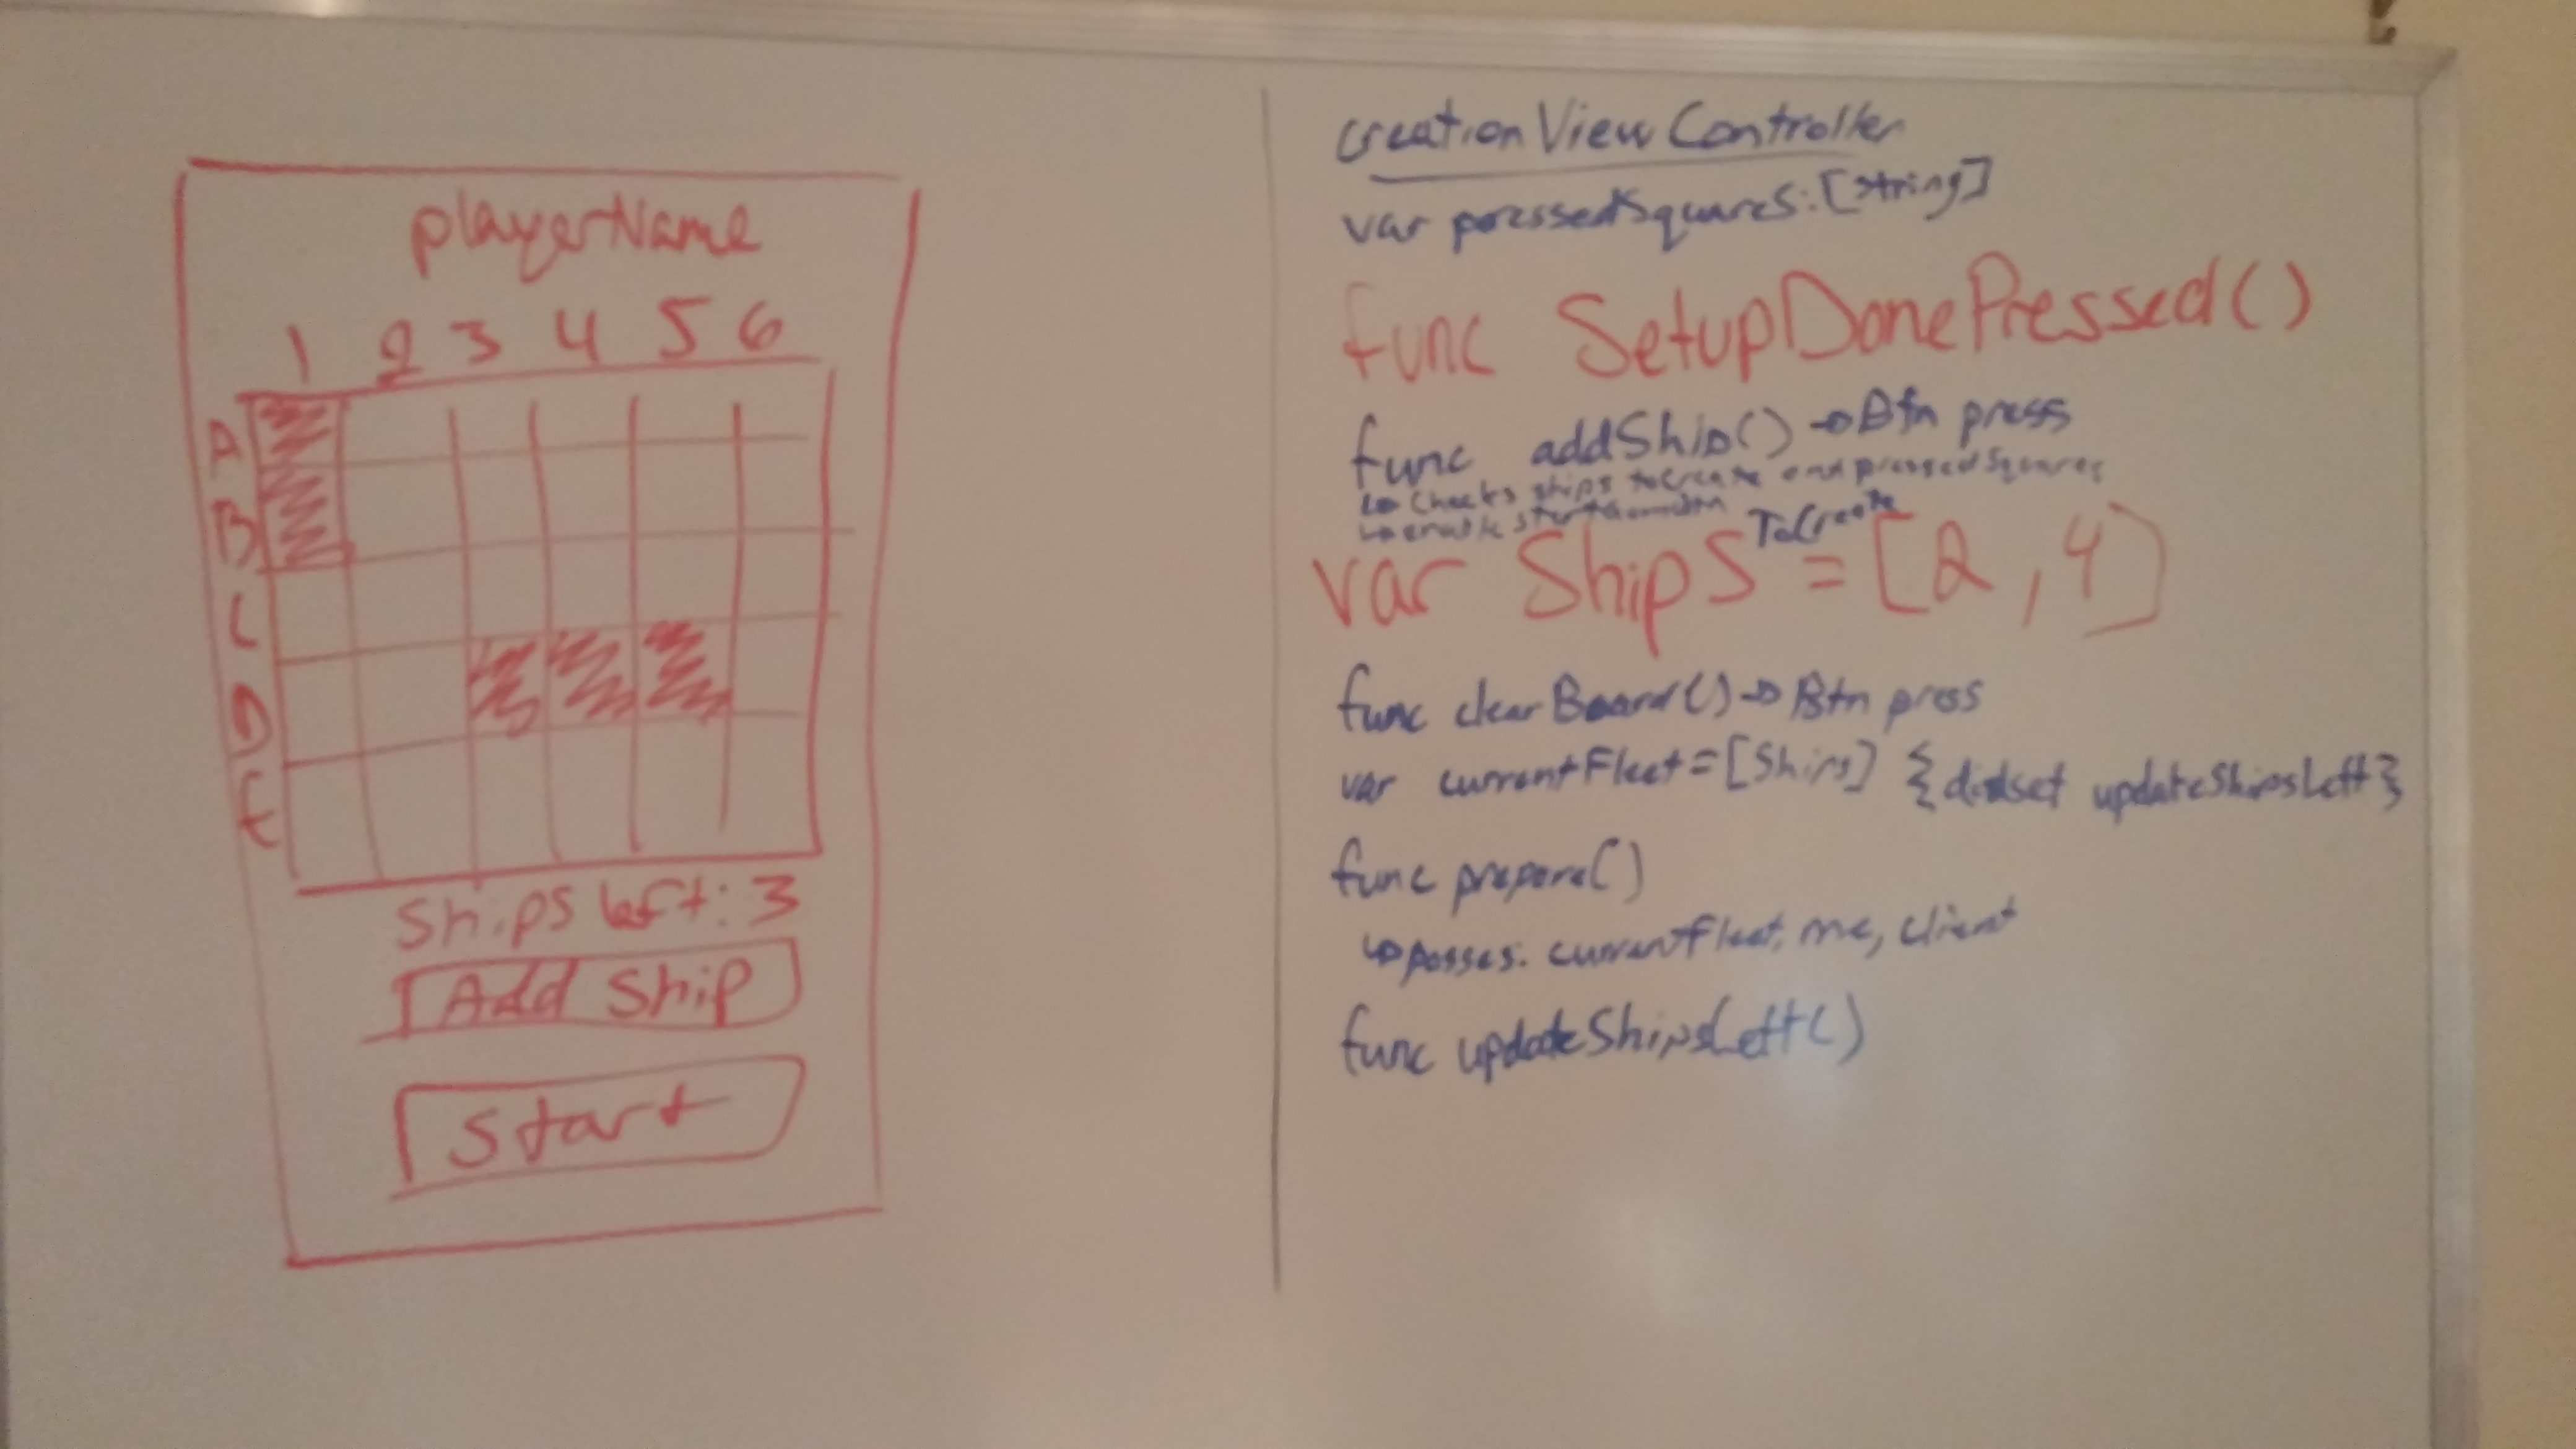 playerName
1 2 3 4 5 6
A
B
C
D
E
Ships left: 3
Add Ship
Start
creationViewController
var pressedSquares: [string]
func SetupDonePressed()
func addShip() → Btn press
↳ Checks ships to create and pressedSquares
↳ enable
var ShipsToCreate = [2, 4]
func clearBoard() → Btn press
var currentFleet = [Ships] {didset updateShipsLeft}
func prepare()
↳ passes: currentFleet, me, client
func updateShipsLeft()